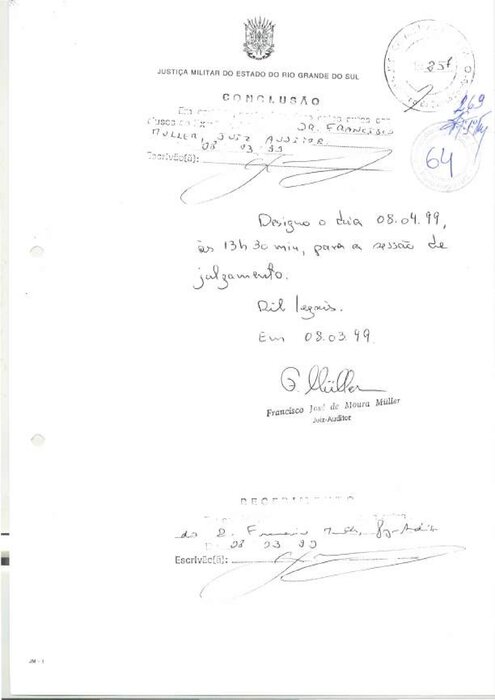 JUSTIÇA MILITAR DO ESTADO DO RIO GRANDE DO SUL
CONCLUSÃO
Em
DR. FRANCISCO
MULLER, JUIZ AUDITOR.
08 03 99
Escrivão(ã):
269
64
Designo o dia 08.04.99,
às 13h30min, para a sessão de
julgamento.
Dil legais.
Em 08.03.99.
F. Müller
Francisco José de Moura Müller
Juiz-Auditor
RECEBIMENTO
08 03 99
Escrivão(ã):
JM - 1